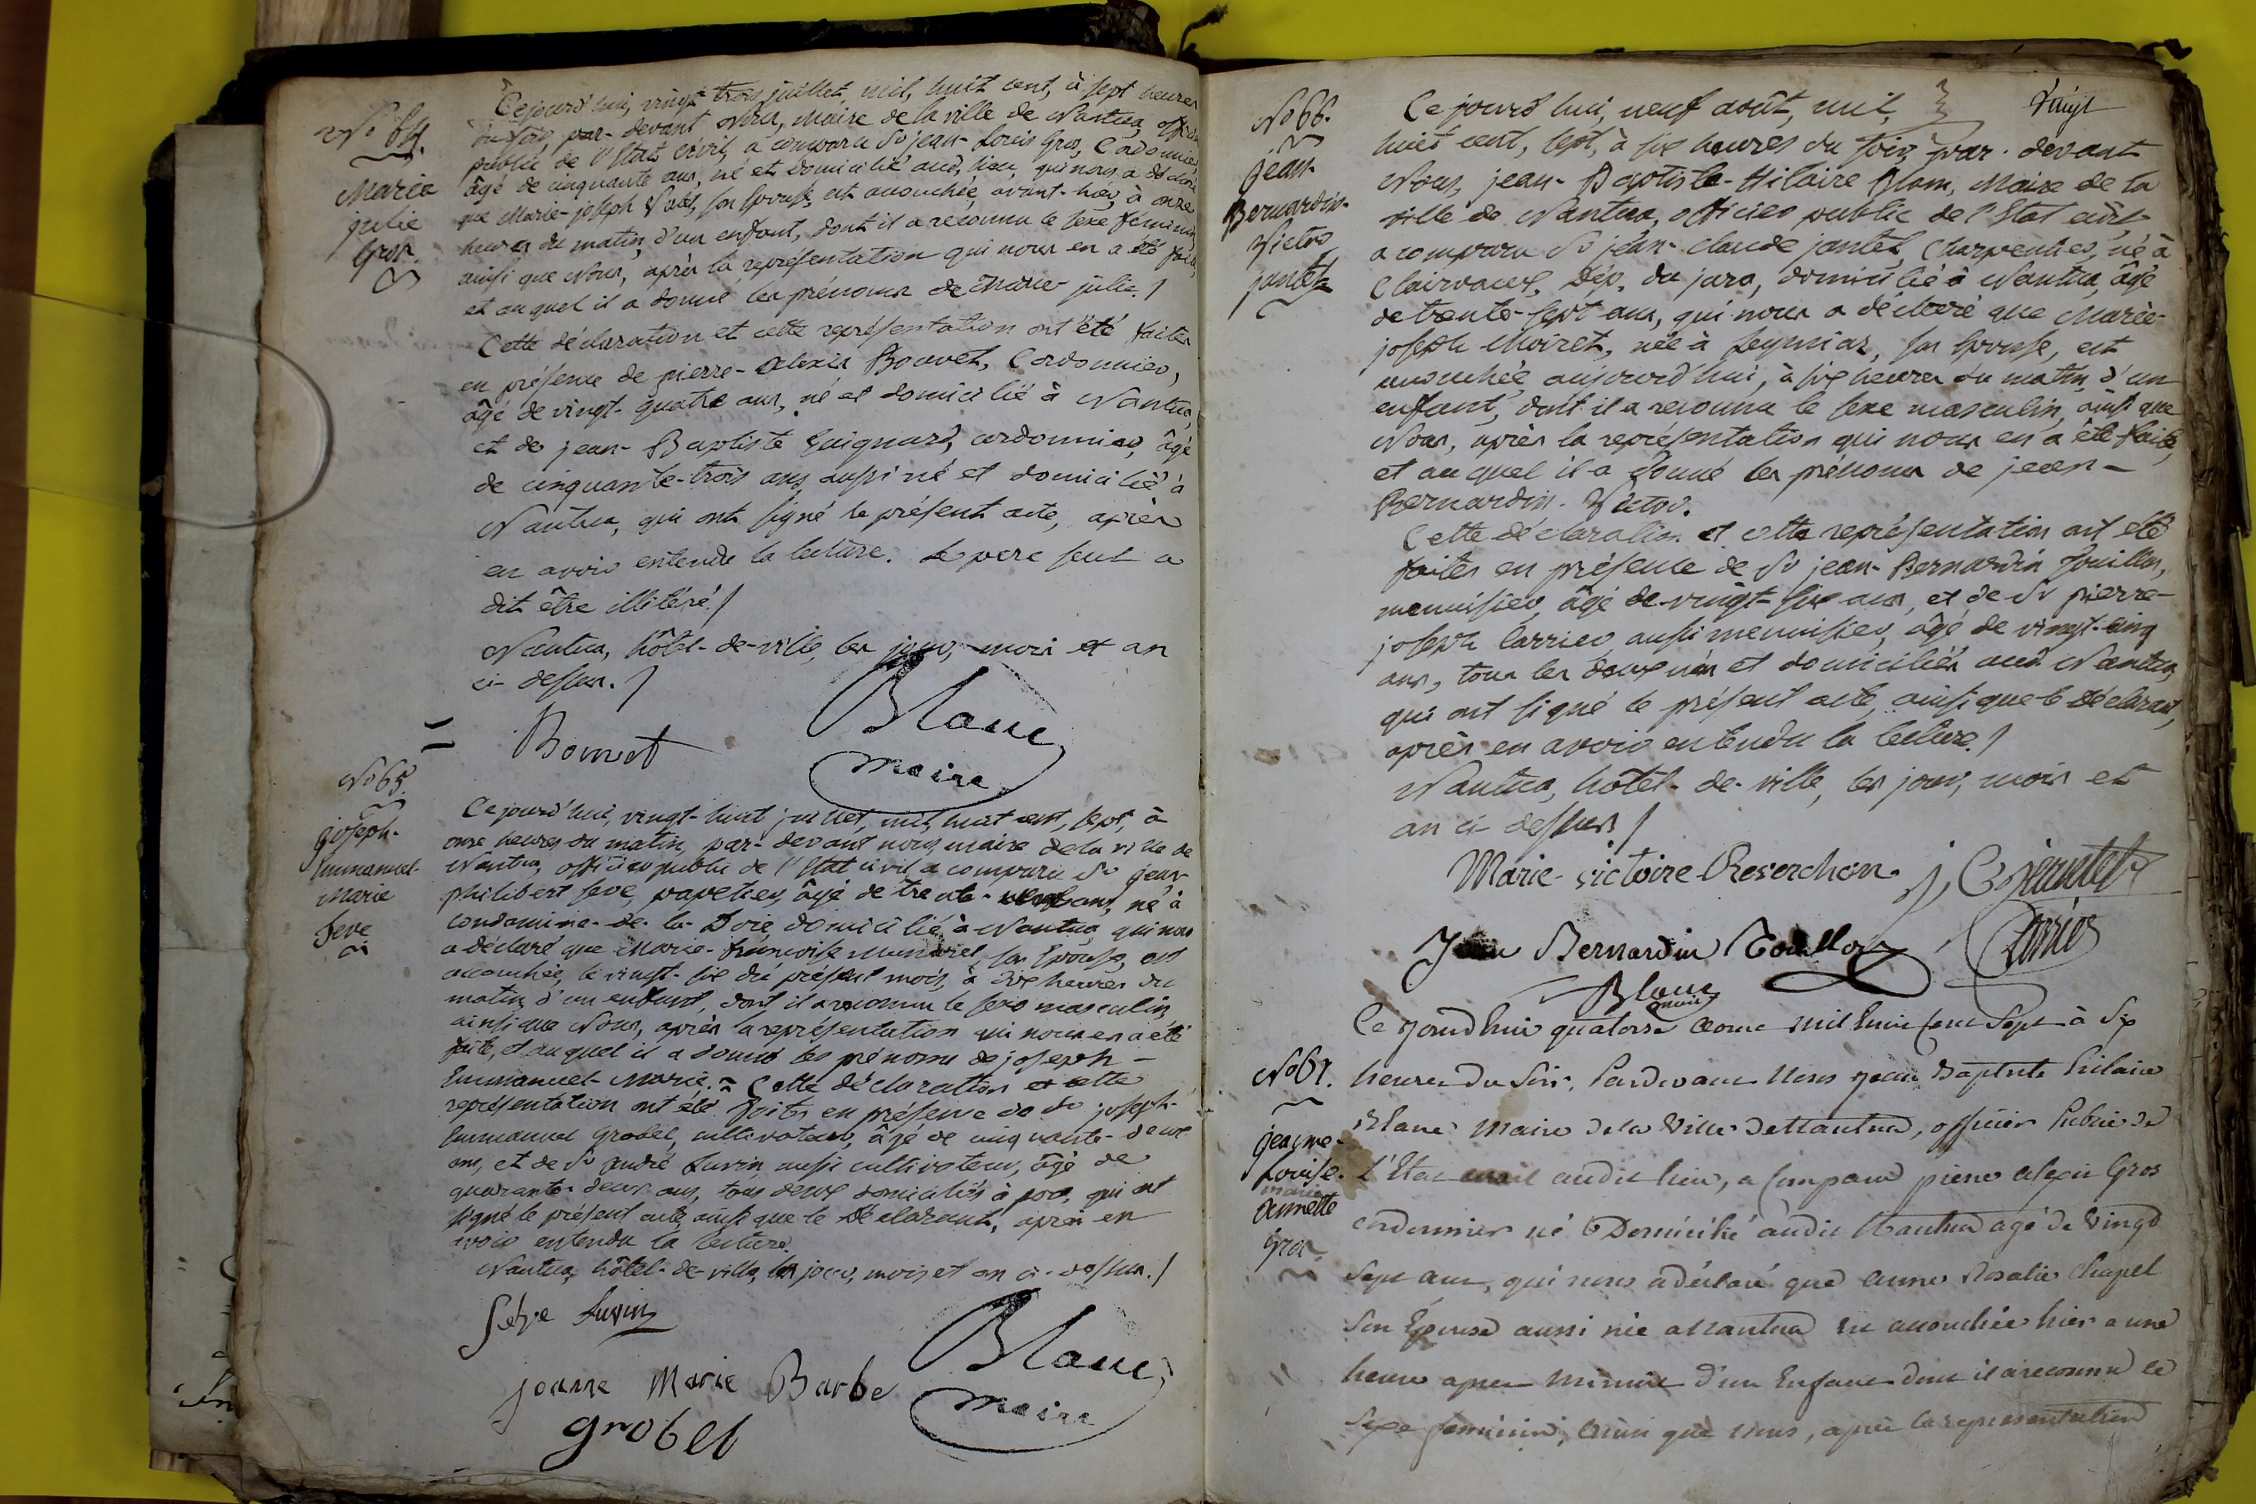 N° 64.
Marie
julie
Gros.
Cejourd'hui, vingt-trois juillet, mil, huit cent, à sept heures
du soir, par-devant Nous, Maire de la ville de Nantua, officier
public de l'Etat civil, a comparu Sr jean-Louis Gros, Cordonnier,
âgé de cinquante ans, né et domicilié aud. lieu, qui nous a déclaré
que Marie-joseph son Epouse, est accouchée, avant-hier, à onze
heures du matin, d'un enfant, dont il a reconnu le sexe féminin,
ainsi que Nous, après la représentation qui nous en a été faite,
et auquel il a donné les prénoms de Marie julie./
Cette déclaration et cette représentation ont été faites
en présence de pierre-Alexis Bouvet, Cordonnier,
âgé de vingt-quatre ans, né et domicilié à Nantua,
et de jean-Baptiste Guignard, cordonnier, âgé
de cinquante-trois ans, aussi né et domicilié à
Nantua, qui ont signé le présent acte, après
en avoir entendu la lecture. Le père seul a
dit être illitéré./
Nantua, hôtel-de-ville, les jour, mois et an
ci-dessus./
Bouvet
Blanc
maire
N° 65.
joseph-
Emmanuel-
Marie
Seve
Cejourd'hui, vingt-huit juillet, mil, huit cent, sept, à
onze heures du matin, par-devant nous, maire de la ville de
Nantua, officier public de l'Etat civil, a comparu Sr jean-
philibert Seve, papetier, âgé de trente- ans, né à
Condamine-de-la-Doie, domicilié à Nantua, qui nous
a déclaré que Marie-françoise son Epouse, est
accouchée, le vingt-six du présent mois, à dix heures du
matin, d'un enfant, dont il a reconnu le sexe masculin,
ainsi que Nous, après la représentation qui nous en a été
faite, et auquel il a donné les prénoms de joseph-
Emmanuel-Marie. = Cette déclaration et cette
représentation ont été faites en présence de Sr joseph-
Emmanuel Grobel, cultivateur, âgé de cinquante-deux
ans, et de Sr andré Luvin, aussi cultivateur, âgé de
quarante-deux ans, tous deux domiciliés à port, qui ont
signé le présent acte, ainsi que le déclarant, après en
avoir entendu la lecture.
Nantua, hôtel-de-ville, les jour, mois et an ci-dessus./
Seve Luvin
Blanc
joanne Marie Barbe
maire
grobel
Vingt
N° 66.
jean-
Bernardin-
Victor
jantet
Ce jourd'hui, neuf août, mil,
huit cent, sept, à six heures du soir, par-devant
Nous, jean-Baptiste-Hilaire Blanc, Maire de la
ville de Nantua, officier public de l'Etat civil,
a comparu Sr jean-claude jantet, Charpentier, né à
Clairvaux, Dép. du jura, domicilié à Nantua, âgé
de trente-sept ans, qui nous a déclaré que Marie-
joseph Moiret, née à Leyssiar, son Epouse, est
accouchée aujourd'hui, à six heures du matin, d'un
enfant, dont il a reconnu le sexe masculin, ainsi que
Nous, après la représentation qui nous en a été faite,
et auquel il a donné les prénoms de jean-
Bernardin-Victor.
Cette déclaration et cette représentation ont été
faites en présence de Sr jean-Bernardin Touillon,
menuisier, âgé de vingt-six ans, et de Sr pierre-
joseph Carrier, aussi menuisier, âgé de vingt-cinq
ans, tous les deux nés et domiciliés aud. Nantua,
qui ont signé le présent acte, ainsi que le déclarant,
après en avoir entendu la lecture./
Nantua, hôtel-de-ville, les jour, mois et
an ci-dessus/
Marie-victoire Reserchon. j, C. jeantet
Jean Bernardin Touillon Carrier
Blanc
maire
N° 67.
jeanne-
Louise-
marie
Annette
Gros.
Ce jourd'hui quatorse Aoust mil huit Cent Sept à Six
heures du Soir, Pardevant Nous jean Baptiste hilaire
Blanc Maire de la Ville de Nantua, officier Public de
l'Etat civil audit lieu, a Comparu pierre alexis Gros
cordonnier né & Domicilié audit Nantua agé de Vingt
Sept ans, qui nous a déclaré que Anne Rosalie Chapel
Son Epouse aussi née a Nantua est accouchée hier a une
heure apres Minuit d'un Enfant dont il a reconnu le
Sexe feminin, ainsi que nous, apres la representation